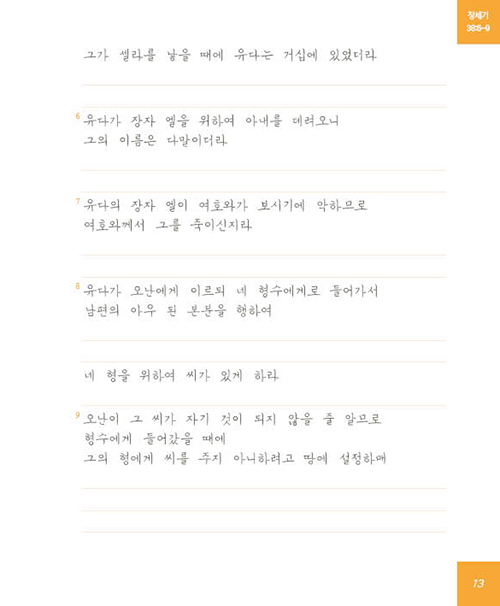 창세기
38:5-9
그가 셀라를 낳을 때에 유다는 거십에 있었더라
6 유다가 장자 엘을 위하여 아내를 데려오니
그의 이름은 다말이더라
7 유다의 장자 엘이 여호와가 보시기에 악하므로
여호와께서 그를 죽이신지라
8 유다가 오난에게 이르되 네 형수에게로 들어가서
남편의 아우 된 본분을 행하여
네 형을 위하여 씨가 있게 하라
9 오난이 그 씨가 자기 것이 되지 않을 줄 알므로
형수에게 들어갔을 때에
그의 형에게 씨를 주지 아니하려고 땅에 설정하매
13